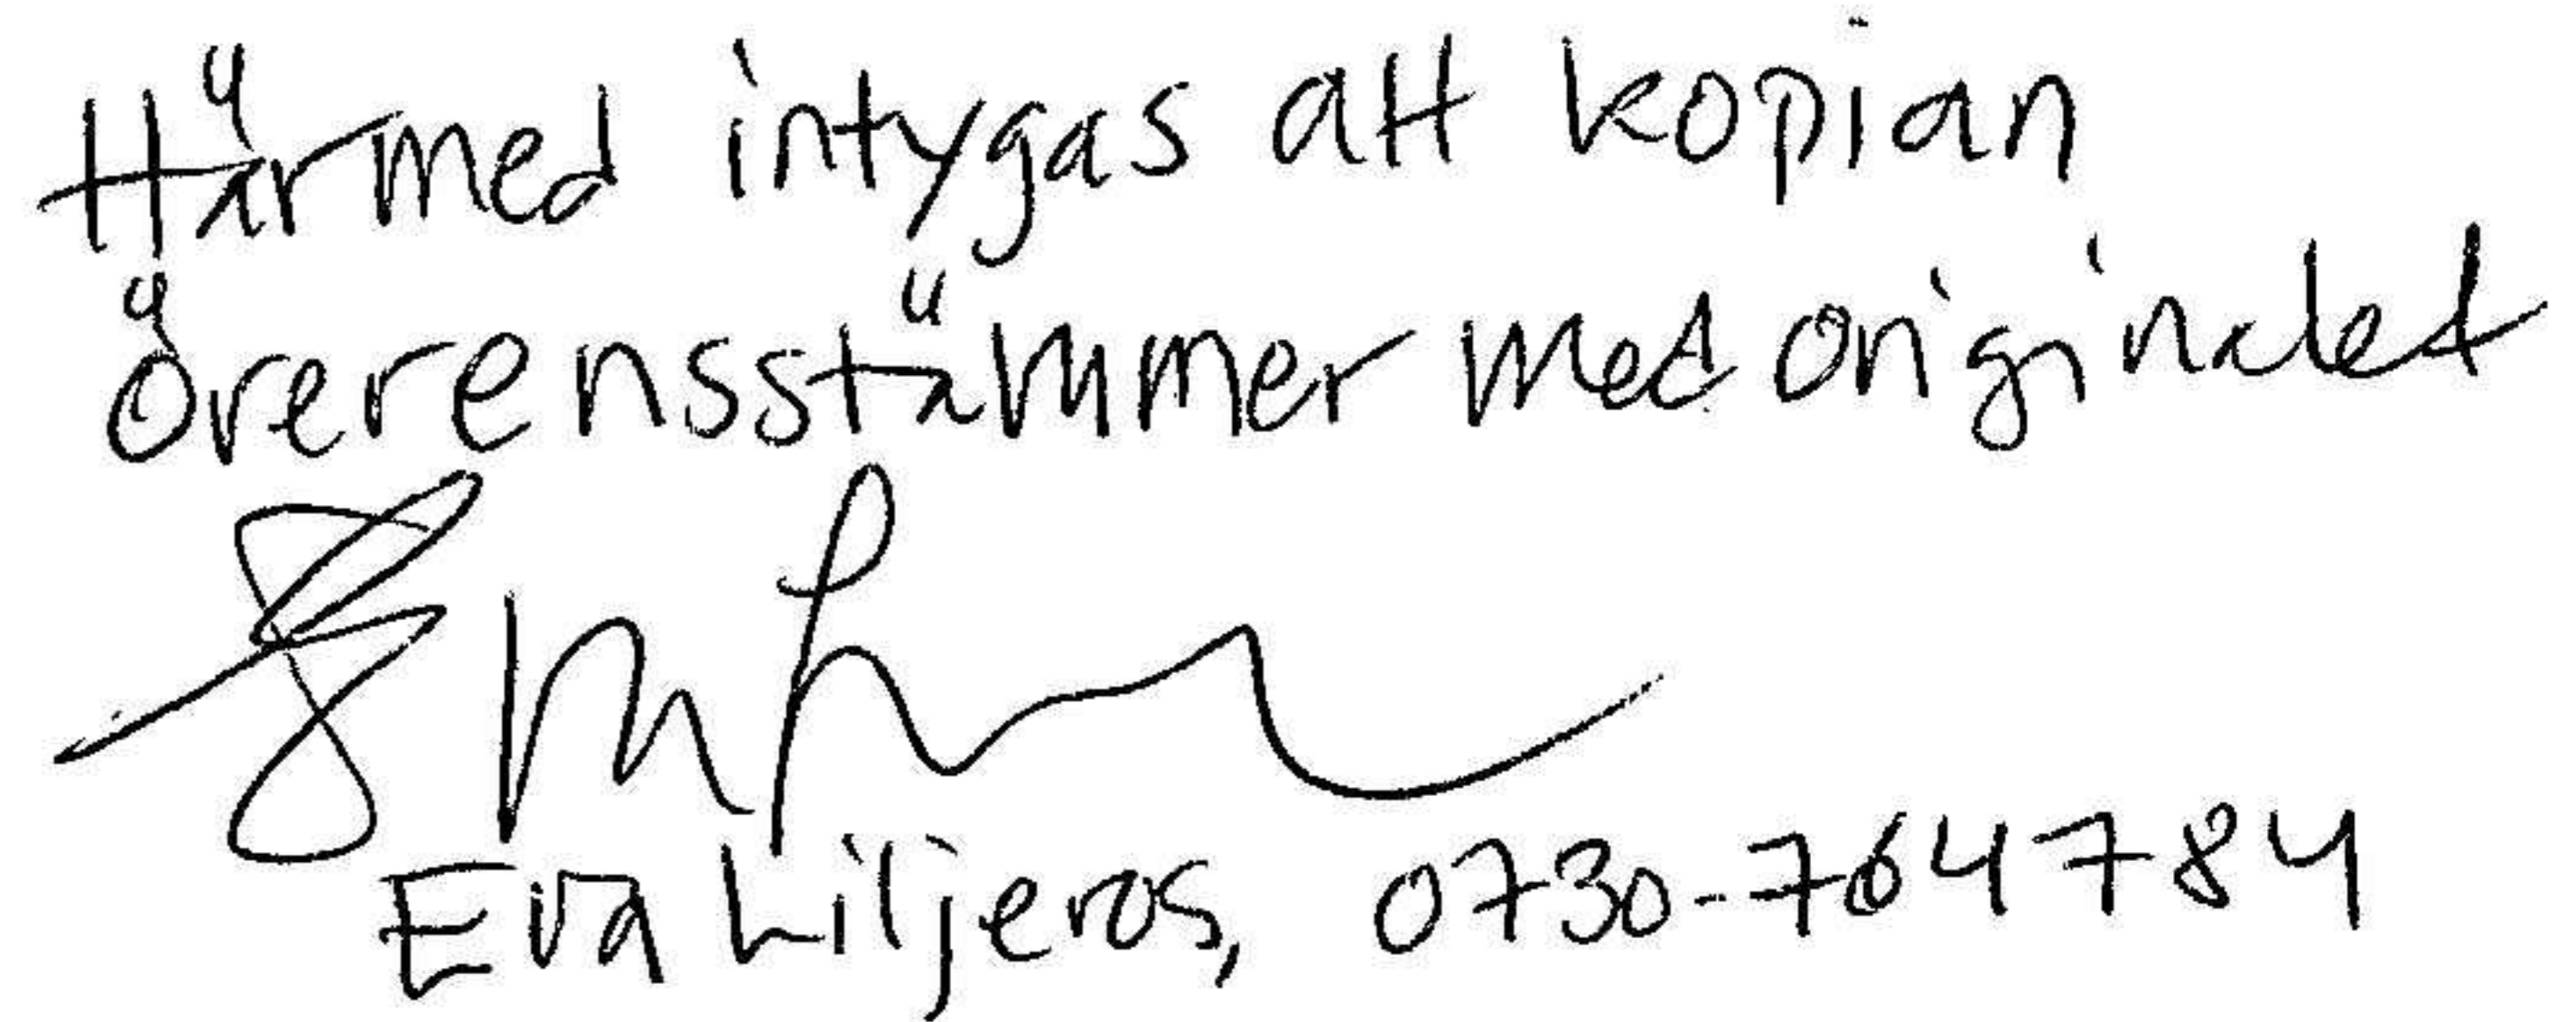 Härmed intygas att kopian
överensstämmer med originalet
Eva Liljeros, 0730-764784